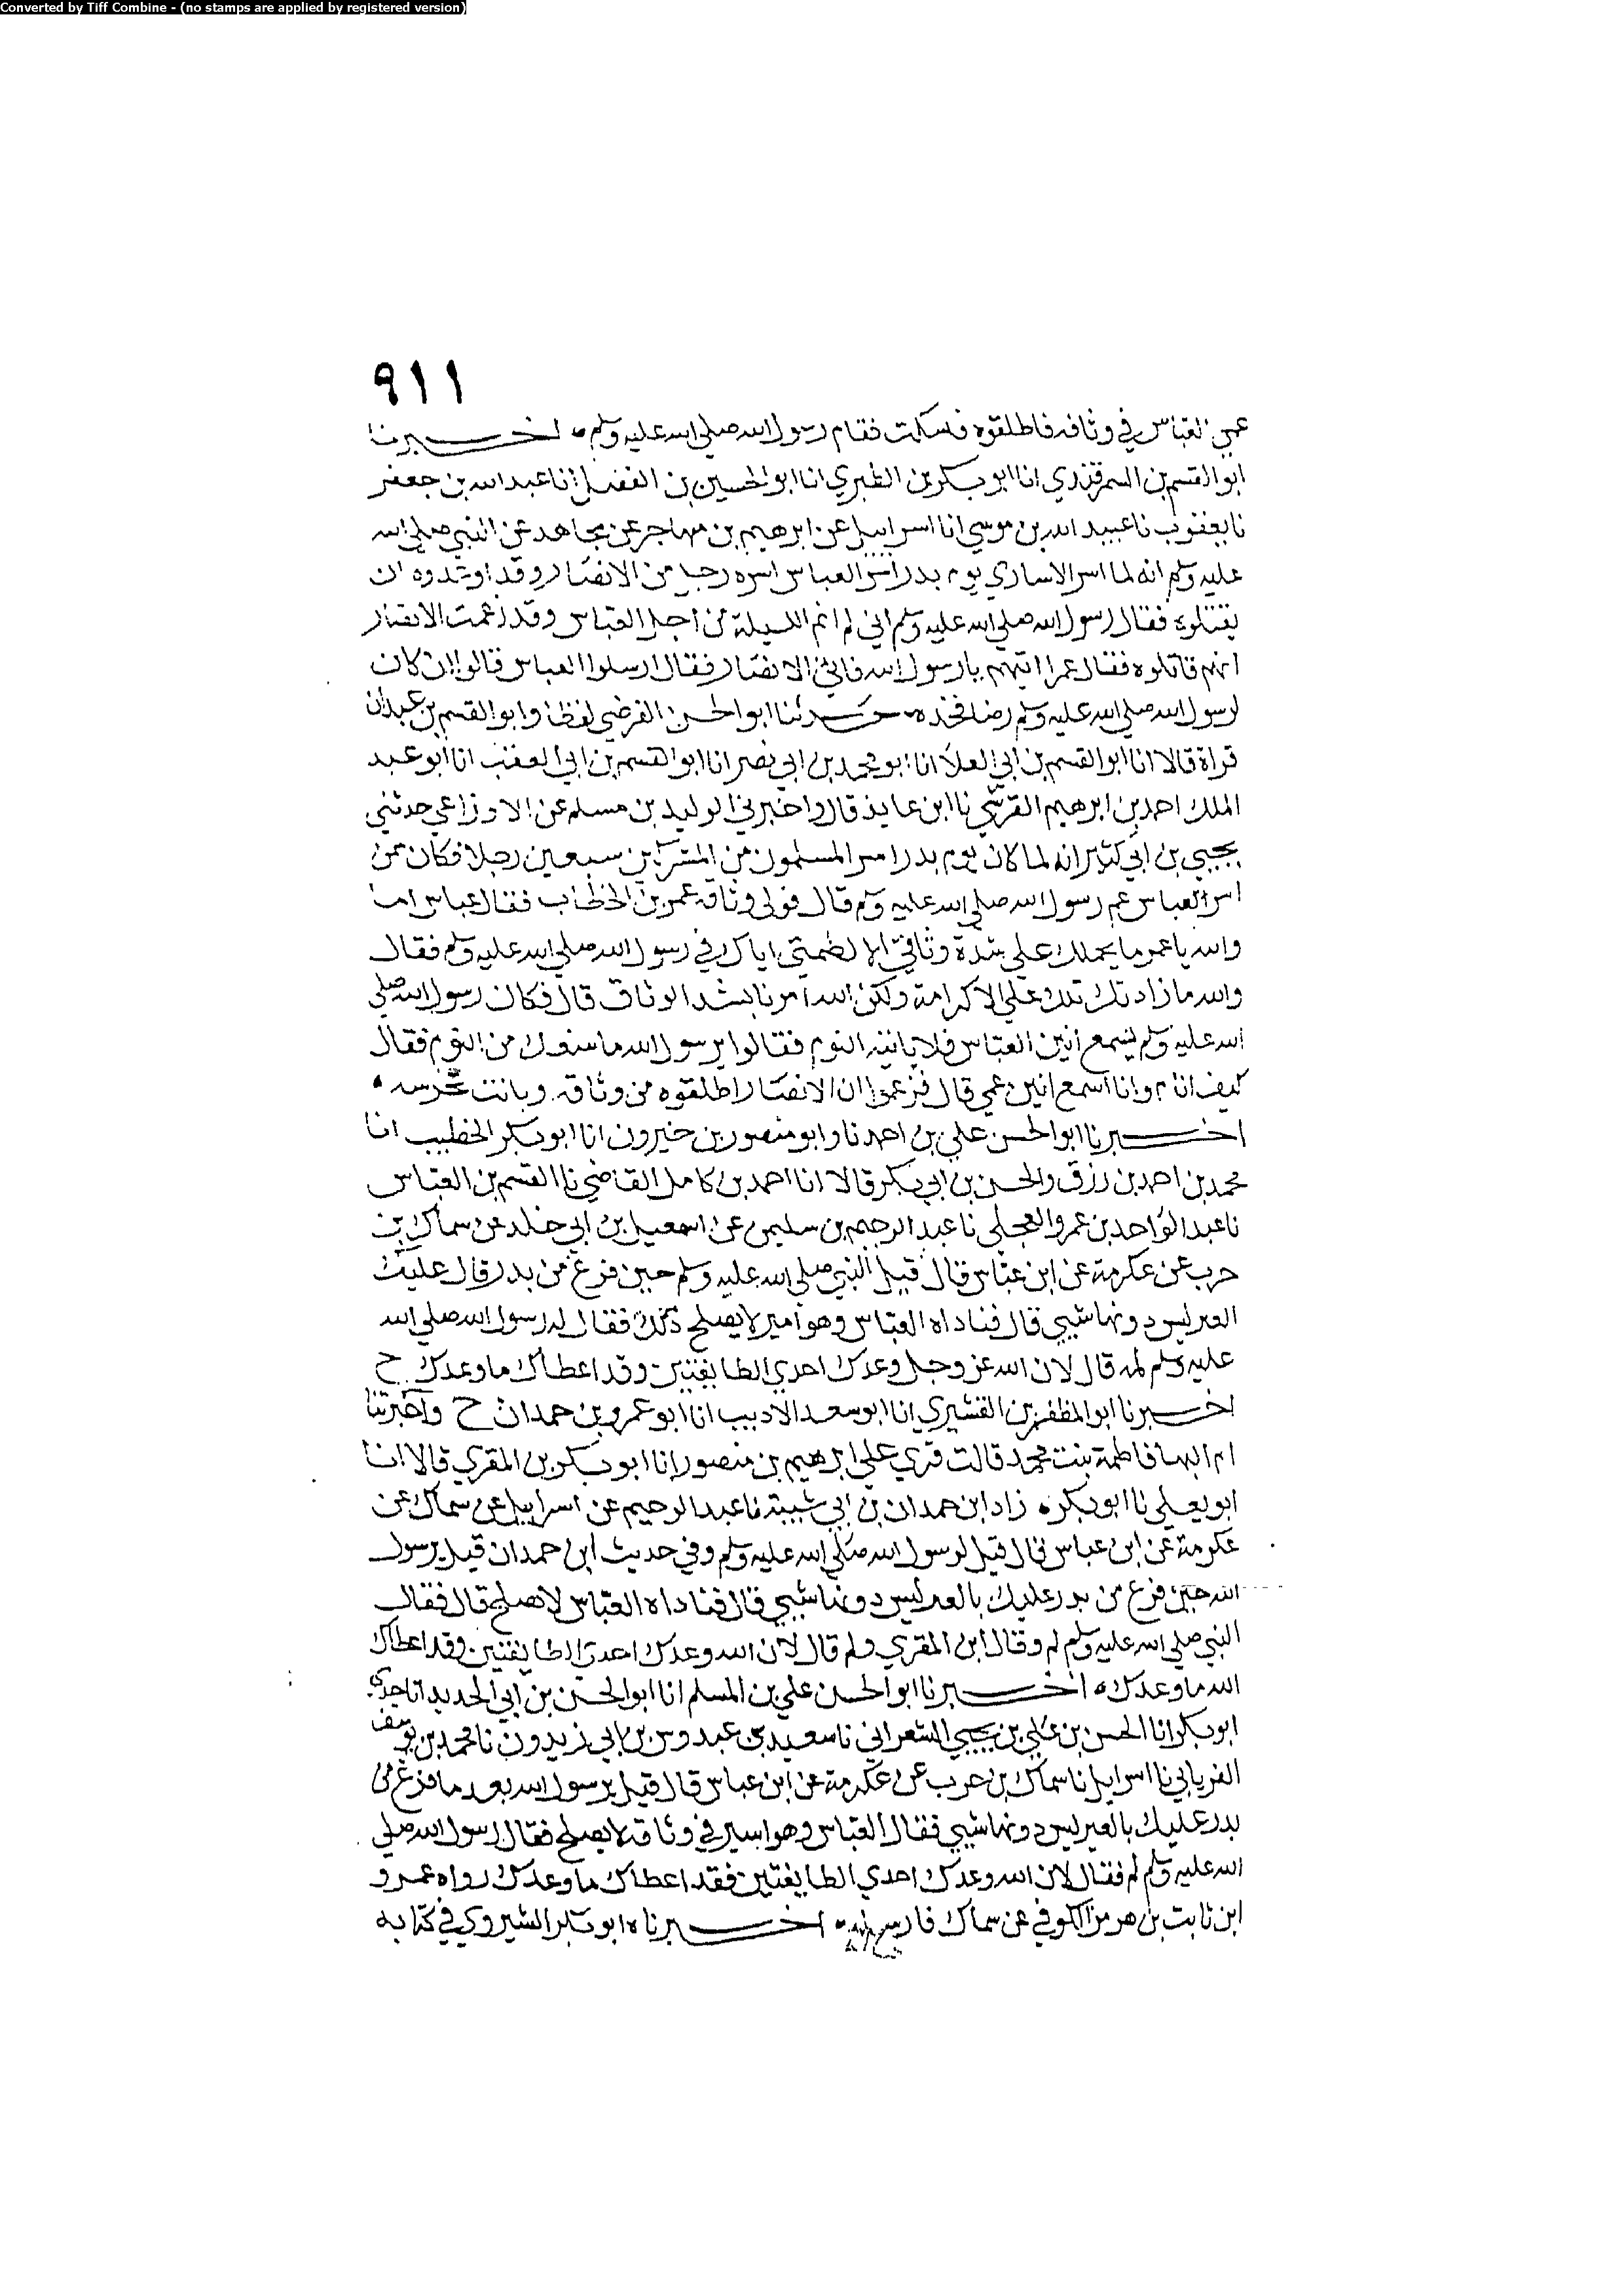 Converted by Tiff Combine - (no stamps are applied by registered version)
٩١١
عمي العباس في وثاقه فاطلقوه فسكت فقام رسول الله صلى الله عليه وسلم اخبرنا
ابو القسم بن السمرقندي انا ابو بكر بن الطبري انا ابو الحسين بن الفضل انا عبد الله بن جعفر
نا يعقوب نا عبيد الله بن موسي انا اسراييل عن ابرهيم بن مهاجر عن مجاهد عن النبي صلي الله
عليه وسلم انه لما اسر الاساري يوم بدر اسر العباس اسره رجل من الانصار وقد اوعدوه ان
يقتلوه فقال رسول الله صلي الله عليه وسلم اني لم انم الليلة من اجل العباس وقد زعمت الانصار
انهم قاتلوه فقال عمر اتيهم يا رسول الله فاتي الانصار فقال ارسلوا العباس قالوا ان كان
لرسول الله صلي الله عليه وسلم رضا فخذه حدثنا ابو الحسن الفرضي لفظا وابو القسم بن عبدان
قراة قالا انا ابو القسم بن ابي العلا انا ابو محمد بن ابي نصر انا ابو القسم بن ابي العقب انا ابو عبد
الملك احمد بن ابرهيم القرشي نا ابن عايذ قال واخبرني الوليد بن مسلم عن الاوزاعي حدثني
يحيي بن ابي كثير انه لما كان يوم بدر اسر المسلمون من المشركين سبعين رجلا فكان ممن
اسر العباس عم رسول الله صلي الله عليه وسلم قال فولي وثاقه عمر بن الخطاب فقال عباس اما
والله يا عمر ما يحملك علي شدة وثاقي الا لطمتي اياك في رسول الله صلي الله عليه وسلم فقال
والله ما زادتك تلك علي الا كرامة ولكن الله امرنا بشد الوثاق قال فكان رسول الله صلي
الله عليه وسلم يسمع انين العباس فلا ياتيه النوم فقالوا يرسول الله ما يمنعك من النوم فقال
كيف انام وانا اسمع انين عمي قال فزعموا ان الانصار اطلقوه من وثاقه وباتت تحرسه
اخبرنا ابو الحسن علي بن احمد نا وابو منصور بن خيرون انا ابو بكر الخطيب انا
محمد بن احمد بن رزق والحسن بن ابي بكر قالا انا احمد بن كامل القاضي نا القسم بن العباس
نا عبد الواحد بن عمرو العجلي نا عبد الرحيم بن سليمن عن اسمعيل بن ابي خلد عن سماك بن
حرب عن عكرمة عن ابن عباس قال قيل للنبي صلي الله عليه وسلم حين فرغ من بدر قال عليك
العير ليس دونها شيي قال فناداه العباس وهو اسير لا يصلح ذلك فقال له رسول الله صلي الله
عليه وسلم لمه قال لان الله عز وجل وعدك احدي الطايفتين وقد اعطاك ما وعدك ح
اخبرنا ابو المظفر بن القشيري انا ابو سعد الاديب انا ابو عمرو بن حمدان ح واخبرتنا
ام البها فاطمة بنت محمد قالت قري علي ابرهيم بن منصور انا ابو بكر بن المقري قالا انا
ابو يعلي نا ابو بكر زاد ابن حمدان بن ابي شيبة نا عبد الرحيم عن اسراييل عن سماك عن
عكرمة عن ابن عباس قال قيل لرسول الله صلي الله عليه وسلم وفي حديث ابن حمدان قيل يرسول
الله حين فرغ من بدر عليك بالعير ليس دونها شيي قال فناداه العباس لا تصلح قال فقال
النبي صلي الله عليه وسلم لم وقال ابن المقري ولم قال لان الله وعدك احدي الطايفتين وقد اعطاك
الله ما وعدك اخبرنا ابو الحسن علي بن المسلم انا ابو الحسن بن ابي الحديد انا جدي
ابو بكر انا الحسن بن علي بن يحيي الشعراني نا سعيد بن عبدوس بن ابي زيدون نا محمد بن يوسف
الفريابي نا اسراييل نا سماك بن حرب عن عكرمة عن ابن عباس قال قيل يرسول الله بعد ما فرغ من
بدر عليك بالعير ليس دونها شيي فقال العباس وهو اسير في وثاقه لا يصلح فقال رسول الله صلي
الله عليه وسلم لم فقال لان الله وعدك احدي الطايفتين فقد اعطاك ما وعدك رواه عمرو
ابن ثابت بن هرمز الكوفي عن سماك فارسله اخبرناه ابو بكر الشيروي في كتابه